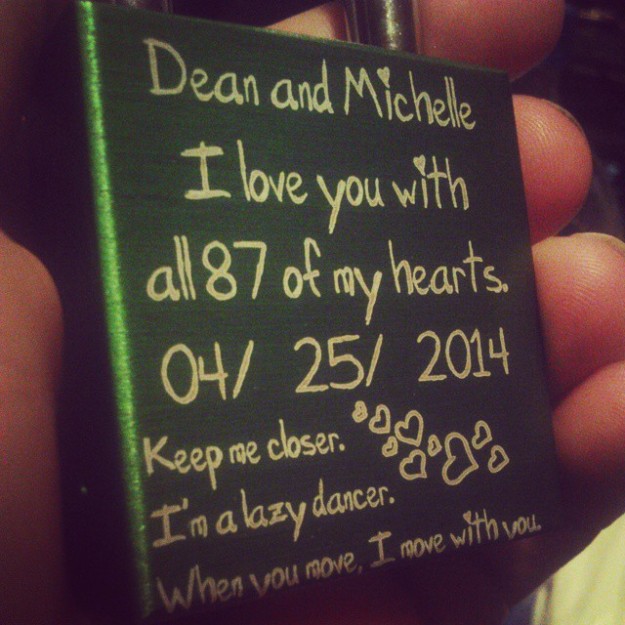 Dean and Michelle
I love you with
all 87 of my hearts.
04/ 25/ 2014
Keep me closer.
I'm a lazy dancer.
When you move, I move with you.